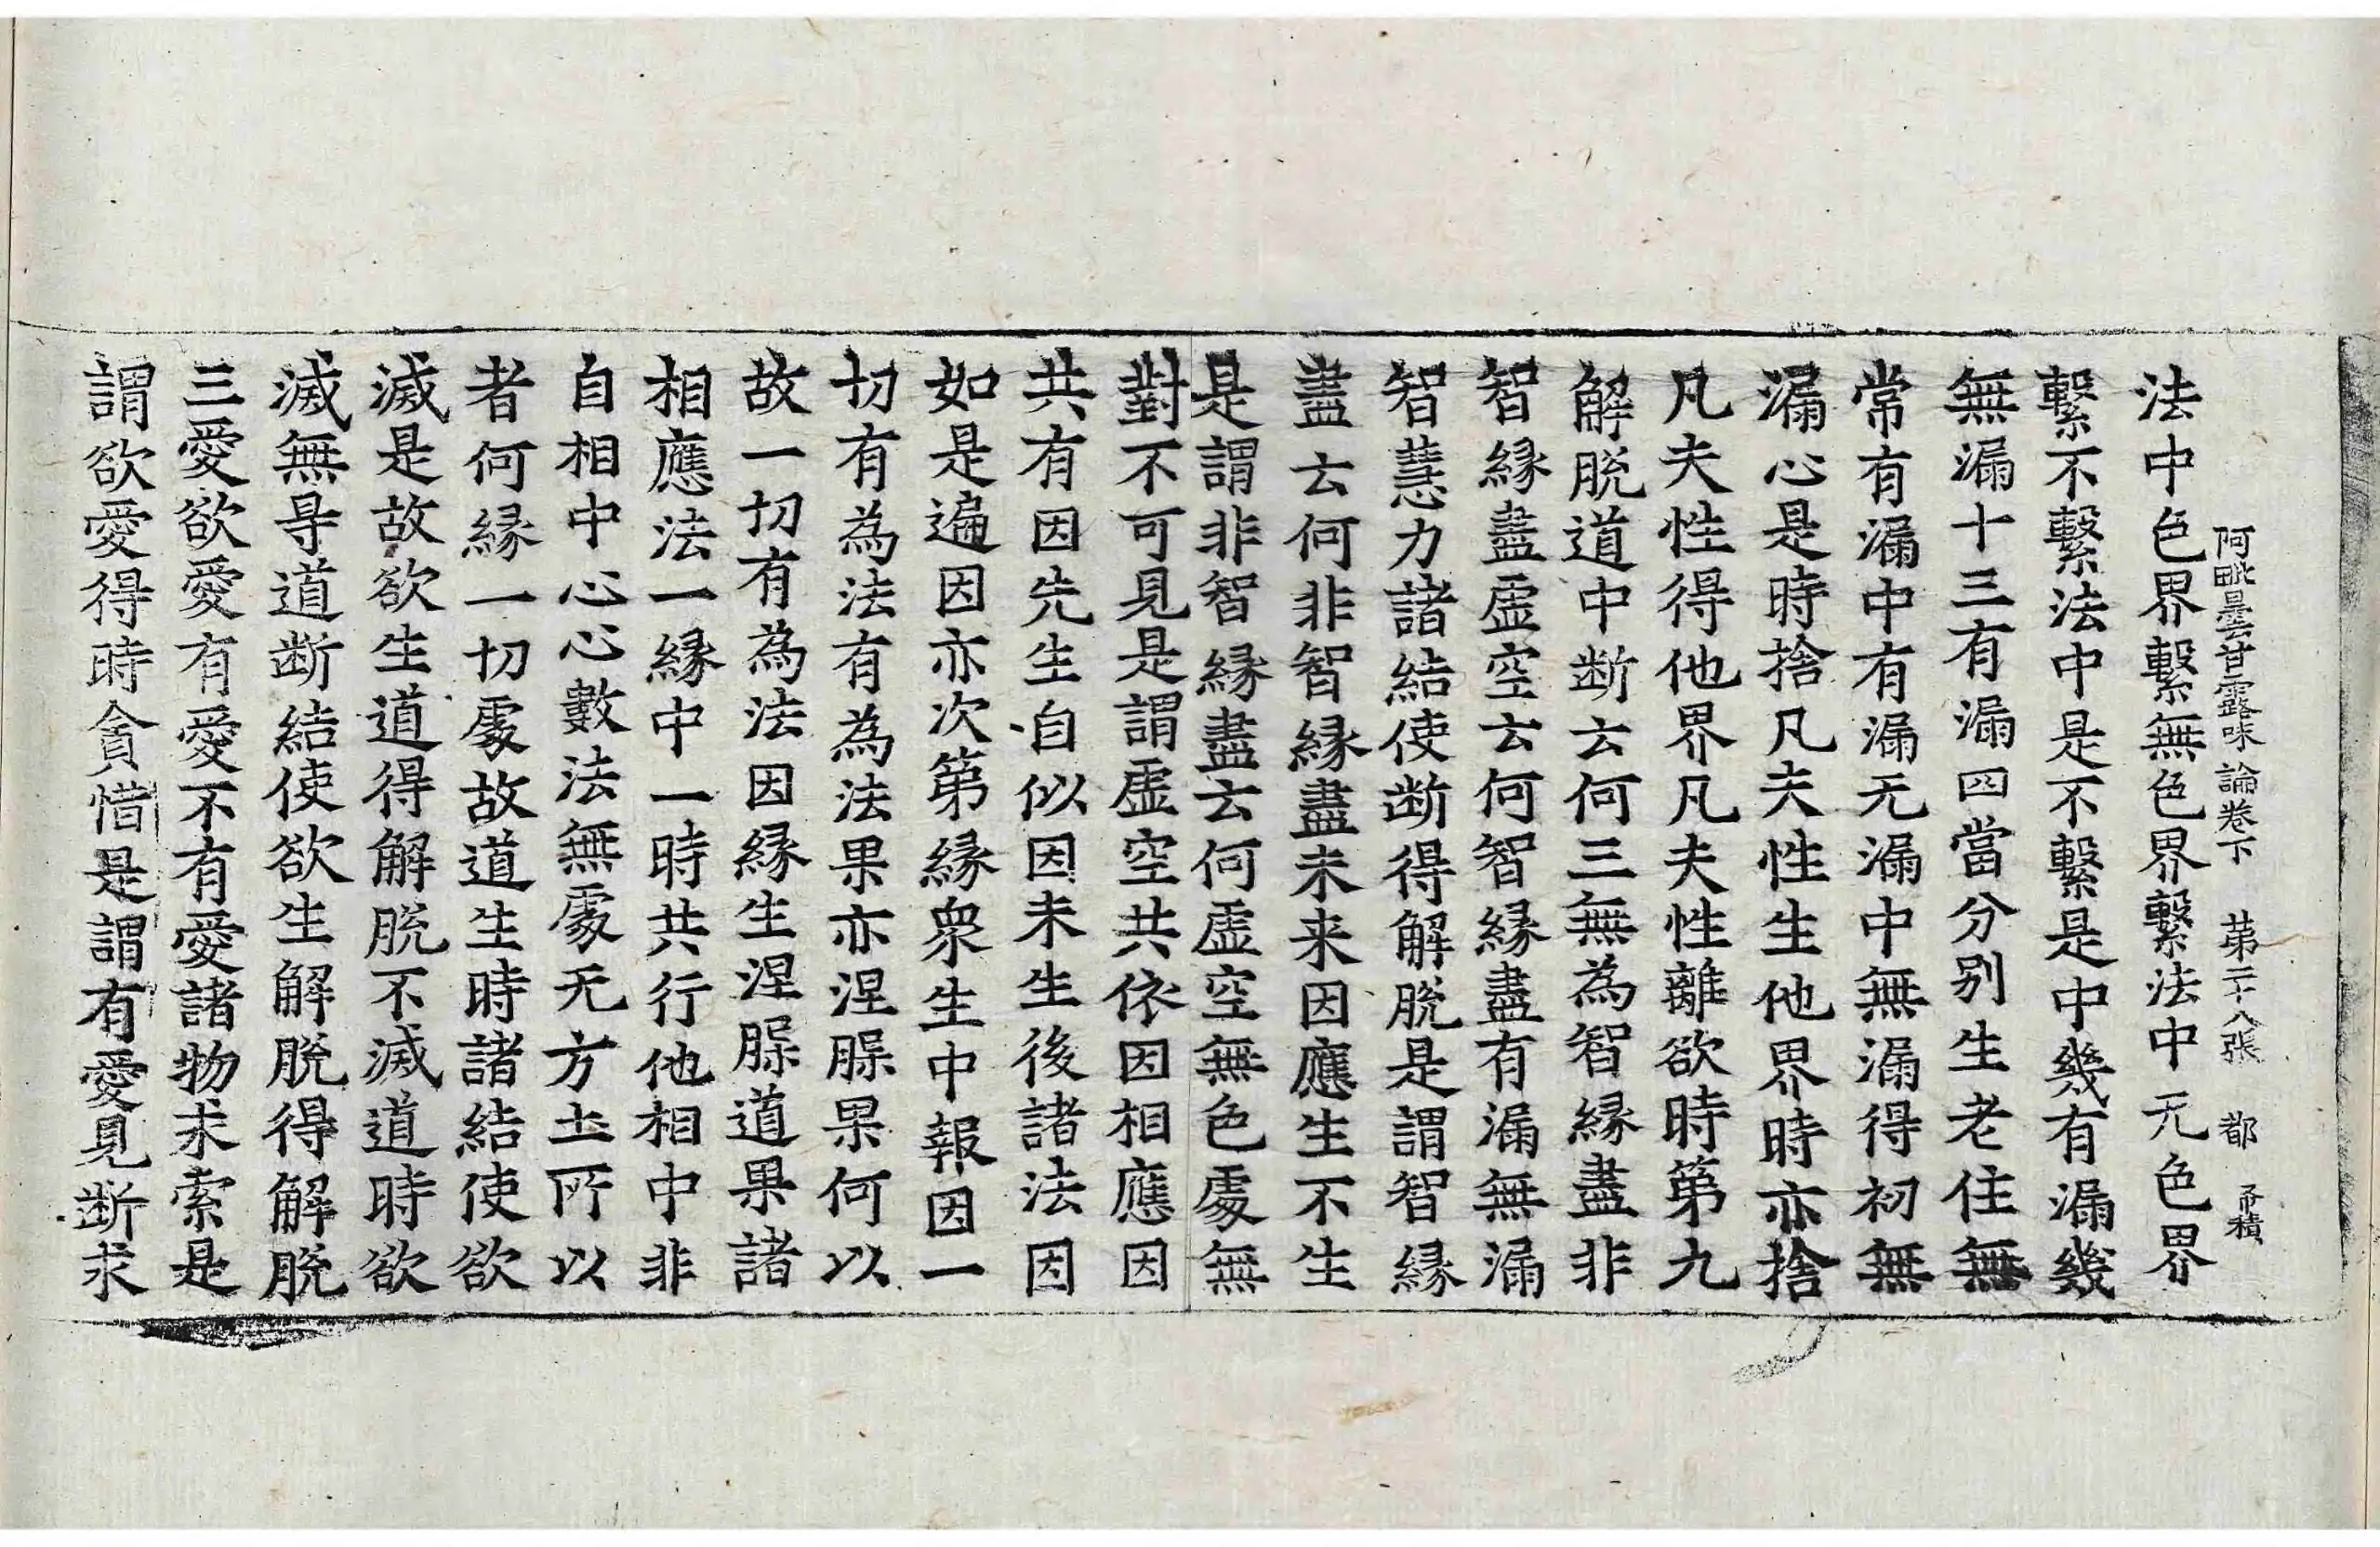 阿毗曇甘露味論卷下　第二十八張　都
法中色界繫無色界繫法中无色界
繫不繫法中是不繫是中幾有漏幾
無漏十三有漏四當分别生老住無
常有漏中有漏无漏中無漏得初無
漏心是時捨凡夫性生他界時亦捨
凡夫性得他界凡夫性離欲時第九
解脫道中断云何三無為智緣盡非
智緣盡虛空云何智緣盡有漏無漏
智慧力諸結使断得解脫是謂智緣
盡云何非智緣盡未来因應生不生
是謂非智緣盡云何虛空無色處無
對不可見是謂虛空共依因相應因
共有因先生自似因未生後諸法因
如是遍因亦次第緣衆生中報因一
切有為法有為法果亦涅槃果何以
故一切有為法因緣生涅槃道果諸
相應法一緣中一時共行他相中非
自相中心心數法無處无方土所以
者何緣一切處故道生時諸結使欲
滅是故欲生道得解脫不滅道時欲
滅無㝵道断結使欲生解脫得解脫
三愛欲愛有愛不有愛諸物求索是
謂欲愛得時貪惜是謂有愛見断求